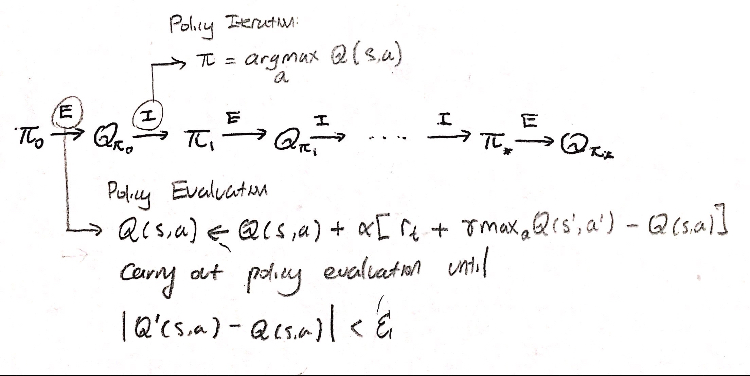 Policy Iteration:
π = argmax Q(s,a)
a
E I E I I E
π₀ → Qπ₀ → π₁ → Qπ₁ → .... → π* → Qπ*
Policy Evaluation
→ Q(s,a) ← Q(s,a) + α[ rₜ + γmaxₐQ(s',a') − Q(s,a)]
Carry out policy evaluation until
|Q'(s,a) − Q(s,a)| < ε